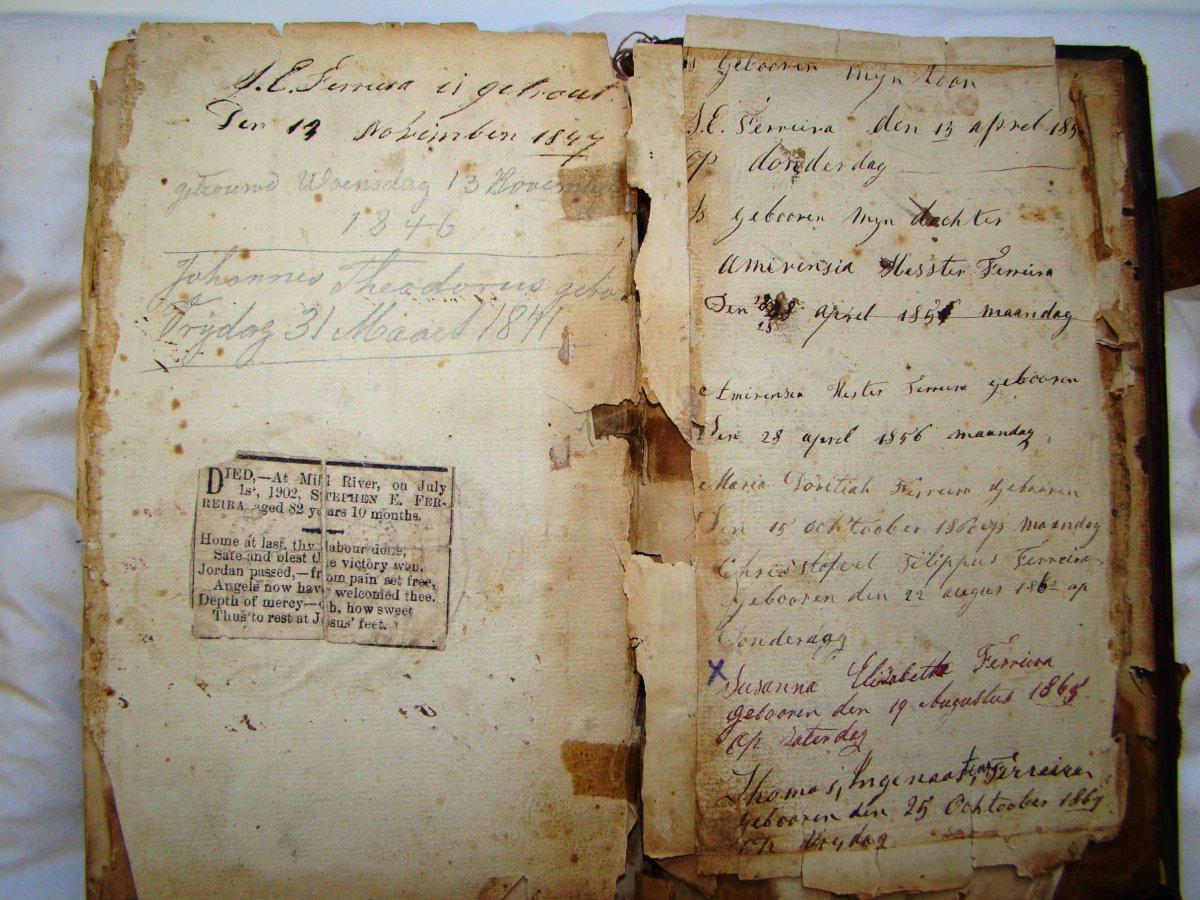 S.E. Ferreira is getrout
Den 13 November 1847
getrouwd Woensdag 13 November
1846
Johannes Theodorus gebo
Vrijdag 31 Maart 1841
DIED,—At Mill River, on July
1st, 1902, STEPHEN E. FER-
REIRA aged 82 years 10 months.
Home at last, thy labour done,
Safe and blest the victory won,
Jordan passed,—from pain set free,
Angels now have welcomed thee.
Depth of mercy—oh, how sweet
Thus to rest at Jesus' feet.
Is gebooren myn zoon
S.E. Ferreira den 13 aprel 185
op donderdag
Is gebooren myn dochter
Amerensia Hesster Ferreira
Den 28 aprel 1856 maandag
Amirensia Hester Ferreira gebooren
Den 28 aprel 1856 maandag
Maria Doretiah Ferreira gebooren
Den 15 ochtoober 1860 op maandag
Chrisstofvel Filippus Ferreira
gebooren den 22 augus 1862 op
donderdag
X Susanna Elizabetta Ferreira
gebooren den 19 Augustus 1865
op zaterdag
Thomas, Ferreira
gebooren den 25 Ochtoober 1867
op Vrydag